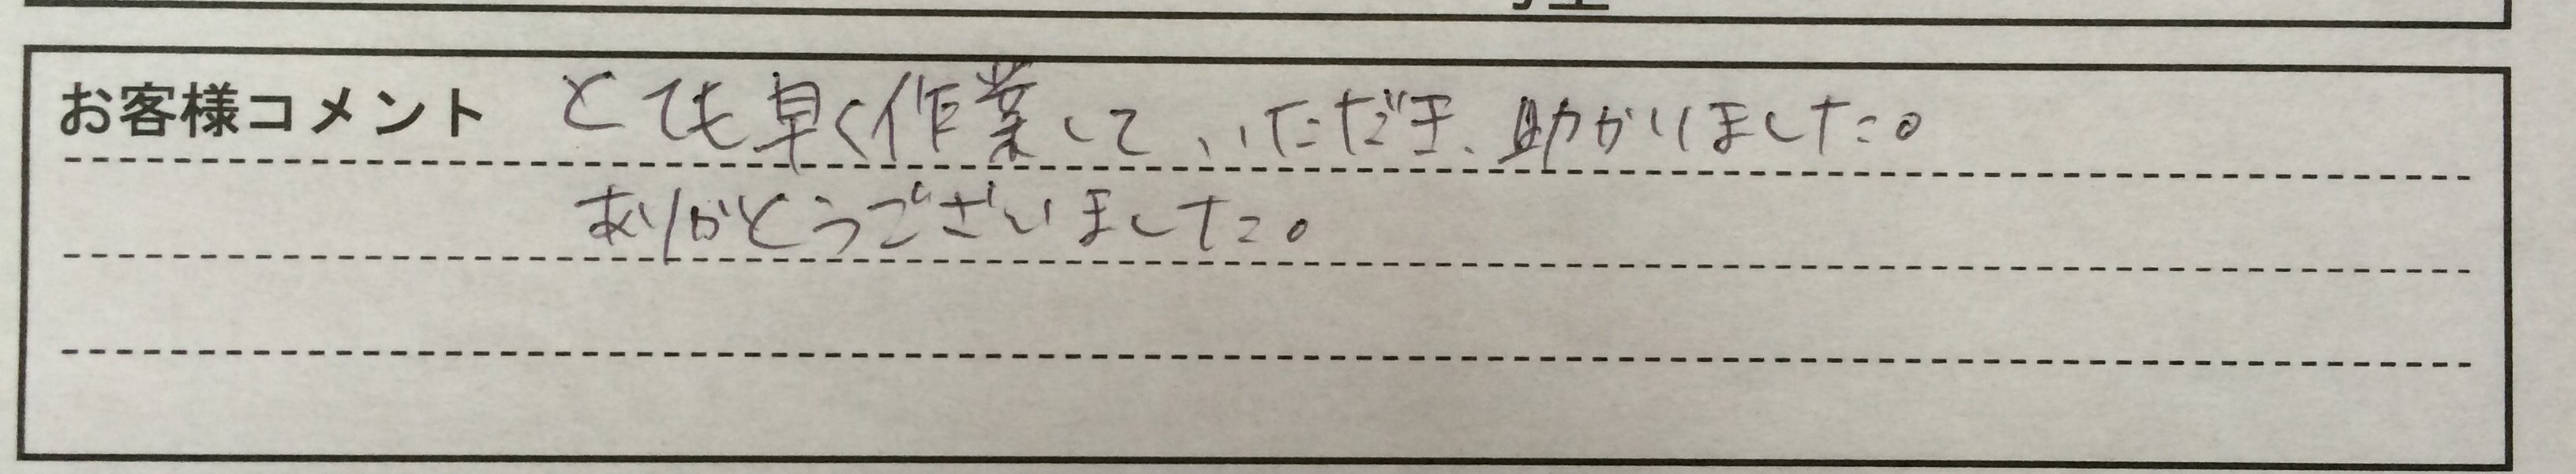 お客様コメント とても早く作業していただき、助かりました。
ありがとうございました。